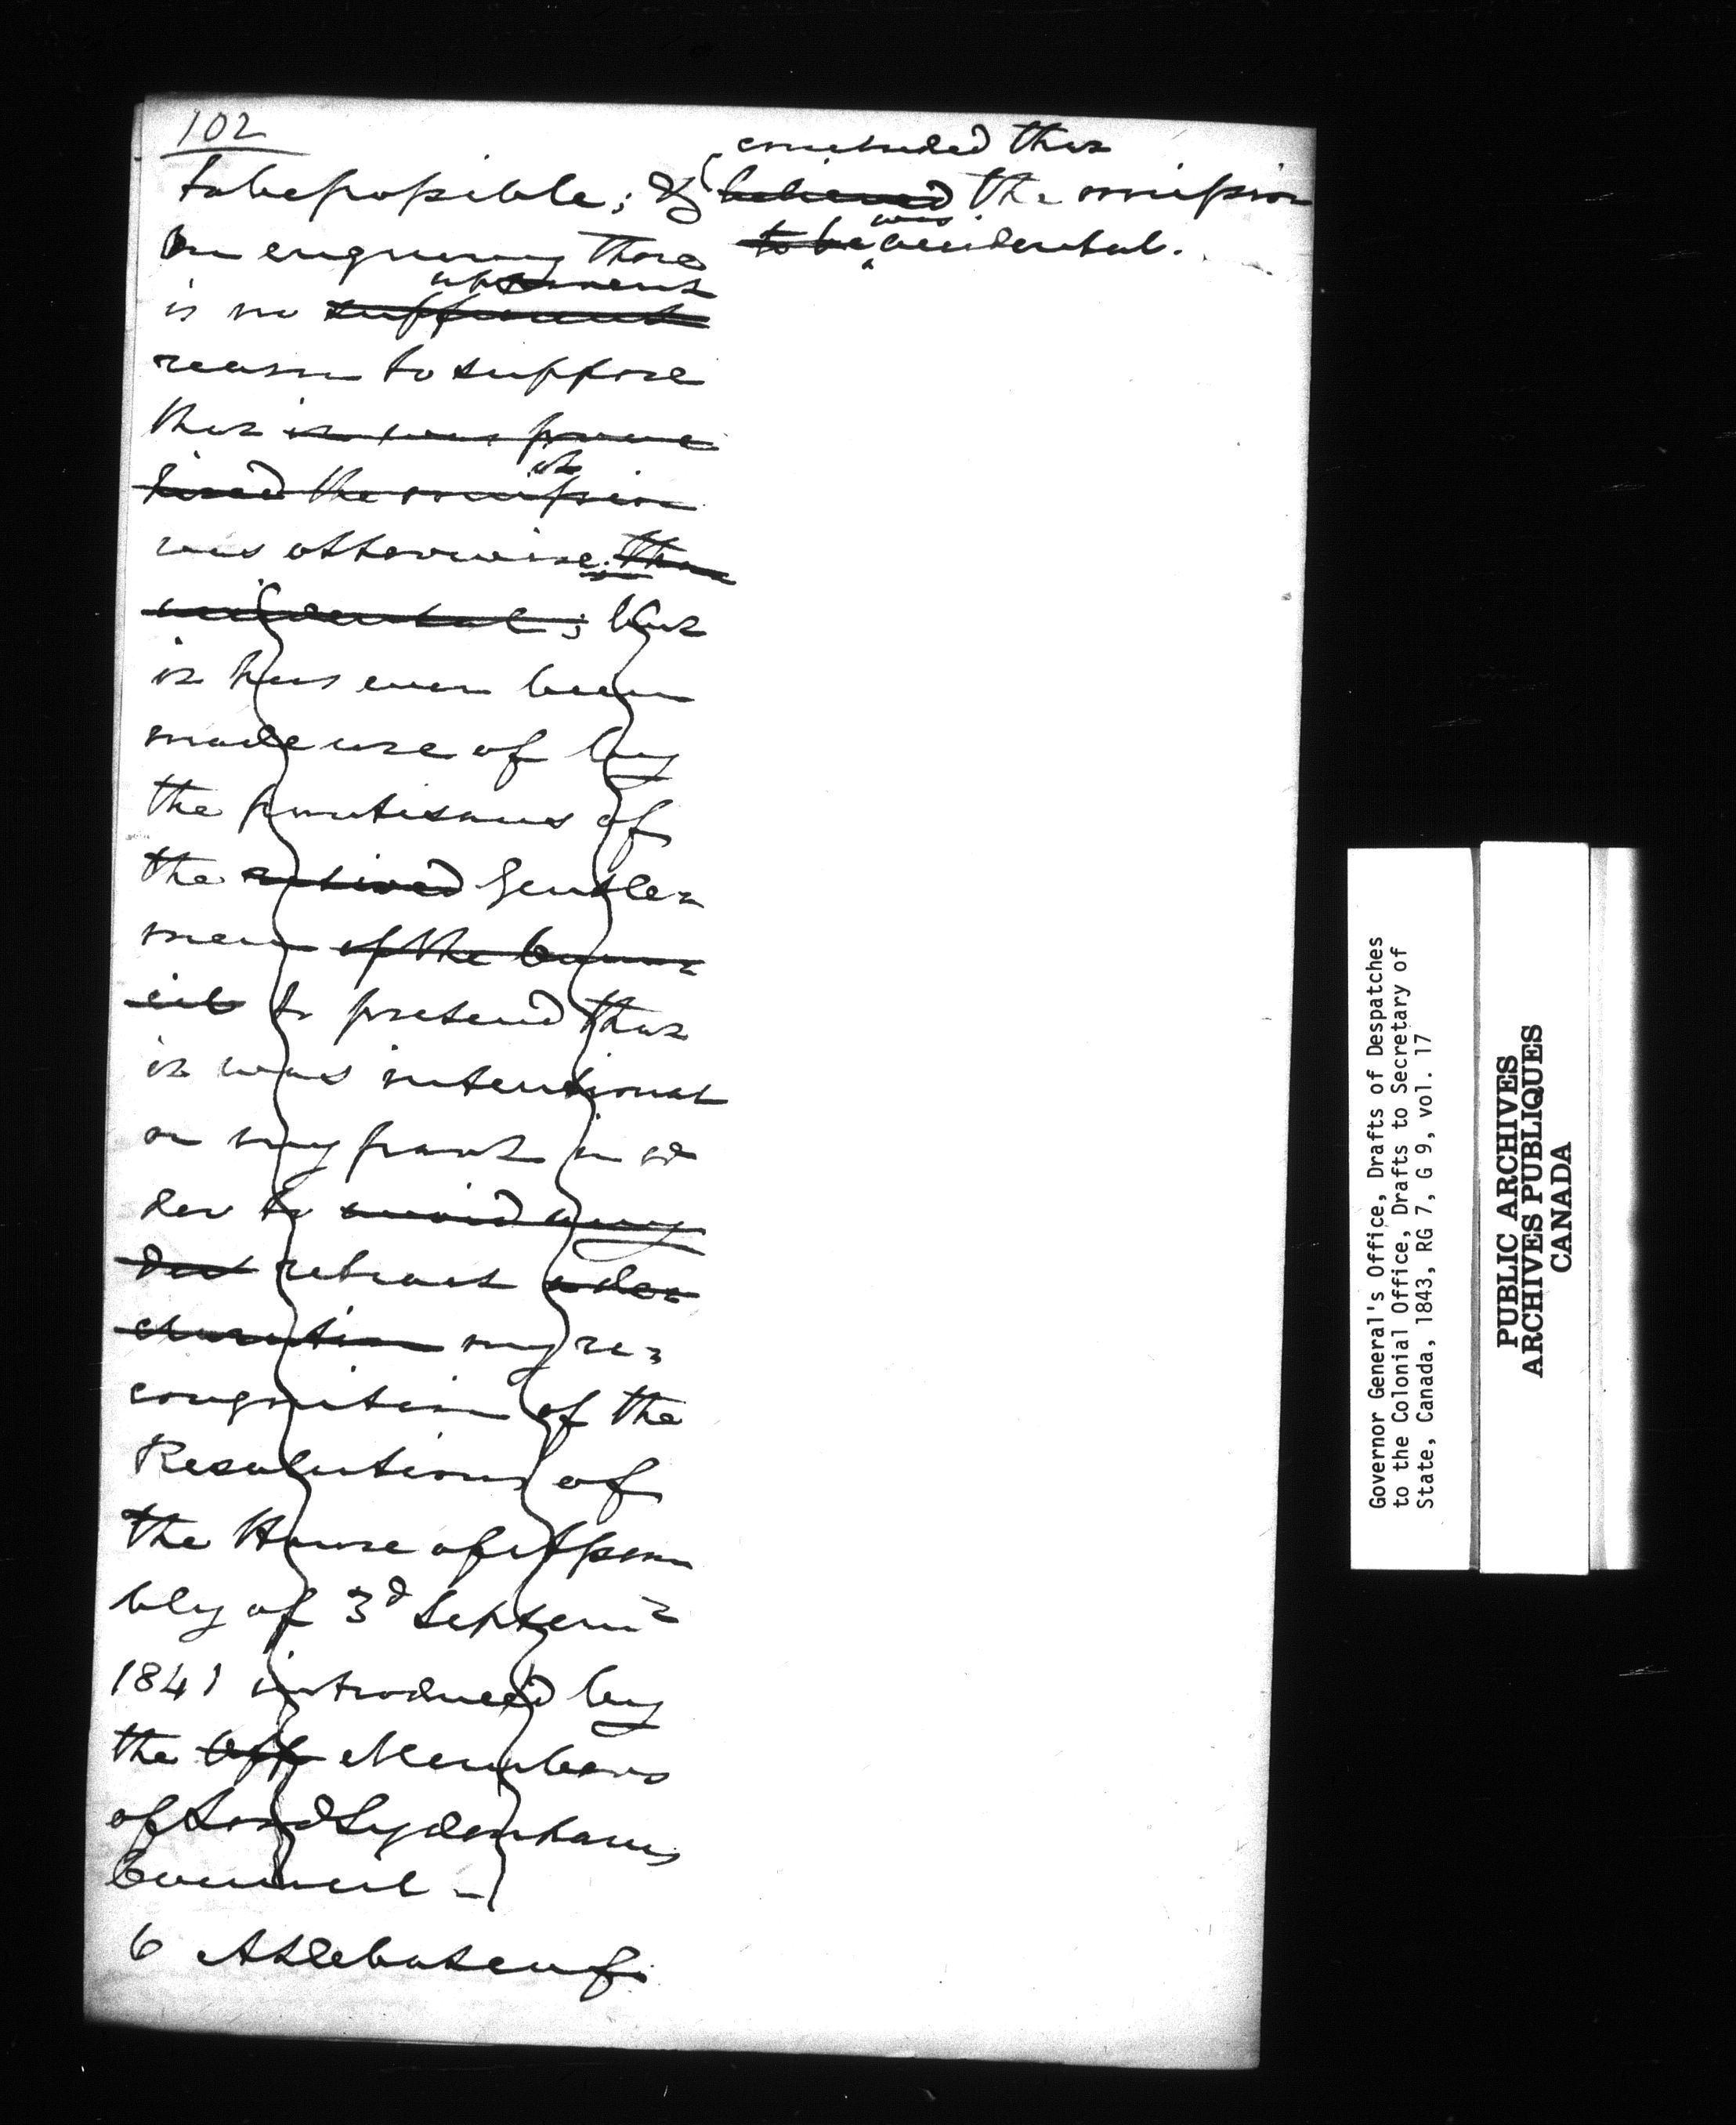 102
to be possible; &
concluded that
believed the omission
was
to be accidental.
On enquiry there
apparent
is no sufficient
reason to suppose
that it was
it
the omission
was otherwise than
accidental; but
it has even been
made use of by
the partisans of
the retired Gentle=
men of the Coun=
cil to pretend that
it was intentional
on my part in or
der to avoid any
retract a dec=
claration my re=
cognition of the
Resolutions of
the House of Assem
bly of 3d Septem=
1841 introduced by
the Off Members
of Lord Sydenhams
Council -
6 At debate of
Governor General's Office, Drafts of Despatches
to the Colonial Office, Drafts to Secretary of
State, Canada, 1843, RG 7, G 9, vol. 17
PUBLIC ARCHIVES
ARCHIVES PUBLIQUES
CANADA